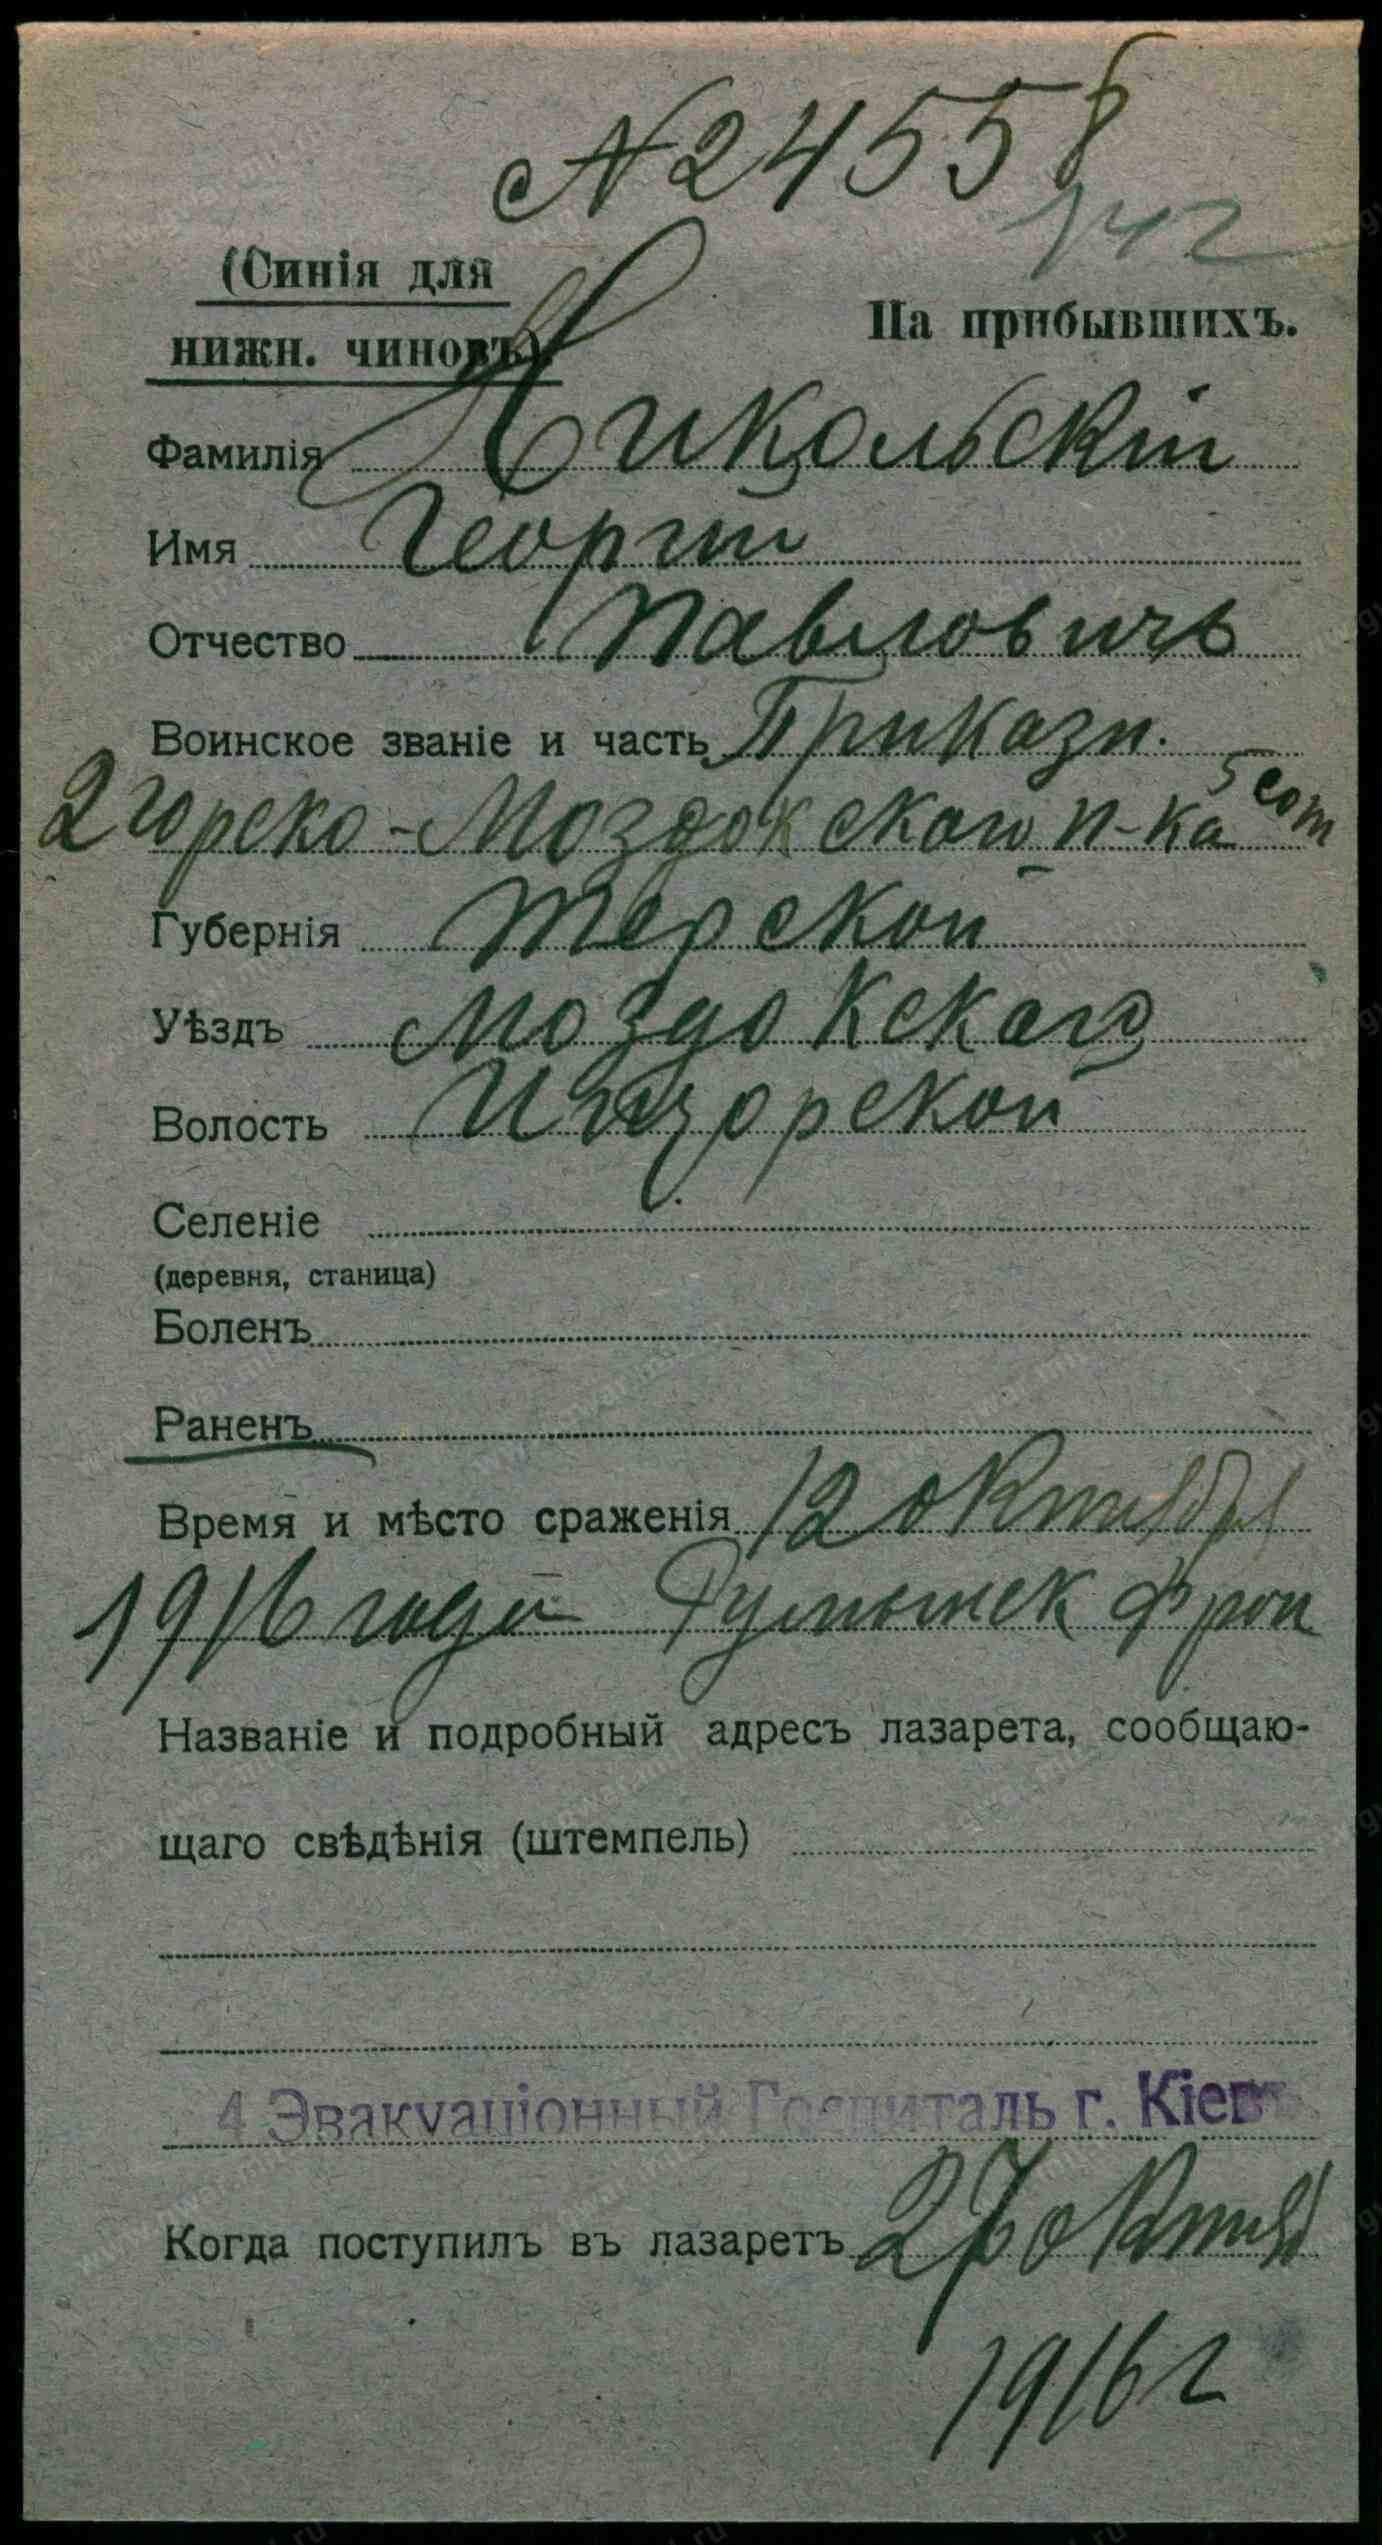 № 24558
142
(Синія для
нижн. чиновъ).
На прибывшихъ.
Фамилія Никольскій
Имя Георгій
Отчество Павловичъ
Воинское званіе и часть Приказн.
2 Горско-Моздокскаго п-ка 5 сот
Губернія Терской
Уѣздъ Моздокскаго
Волость Ищорской
Селеніе
(деревня, станица)
Боленъ
Раненъ
Время и мѣсто сраженія 12 октября
1916 года Румынск фрон
Названіе и подробный адресъ лазарета, сообщаю-
щаго свѣдѣнія (штемпель)
4 Эвакуаціонный Госпиталь г. Кіевъ
Когда поступилъ въ лазаретъ 27 октяб
1916 г